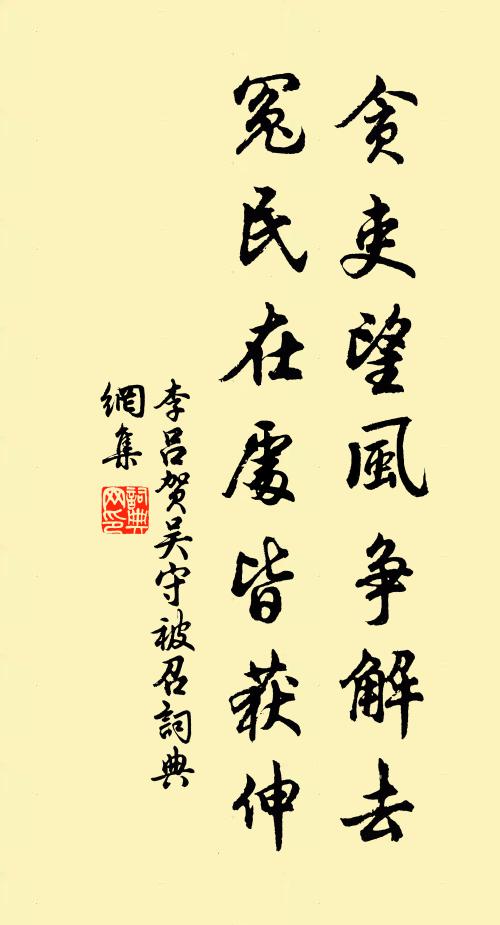 貪吏望風争解去
冤民在處皆获伸
李吕贺吴守被召詞典
網集
詞典
网印